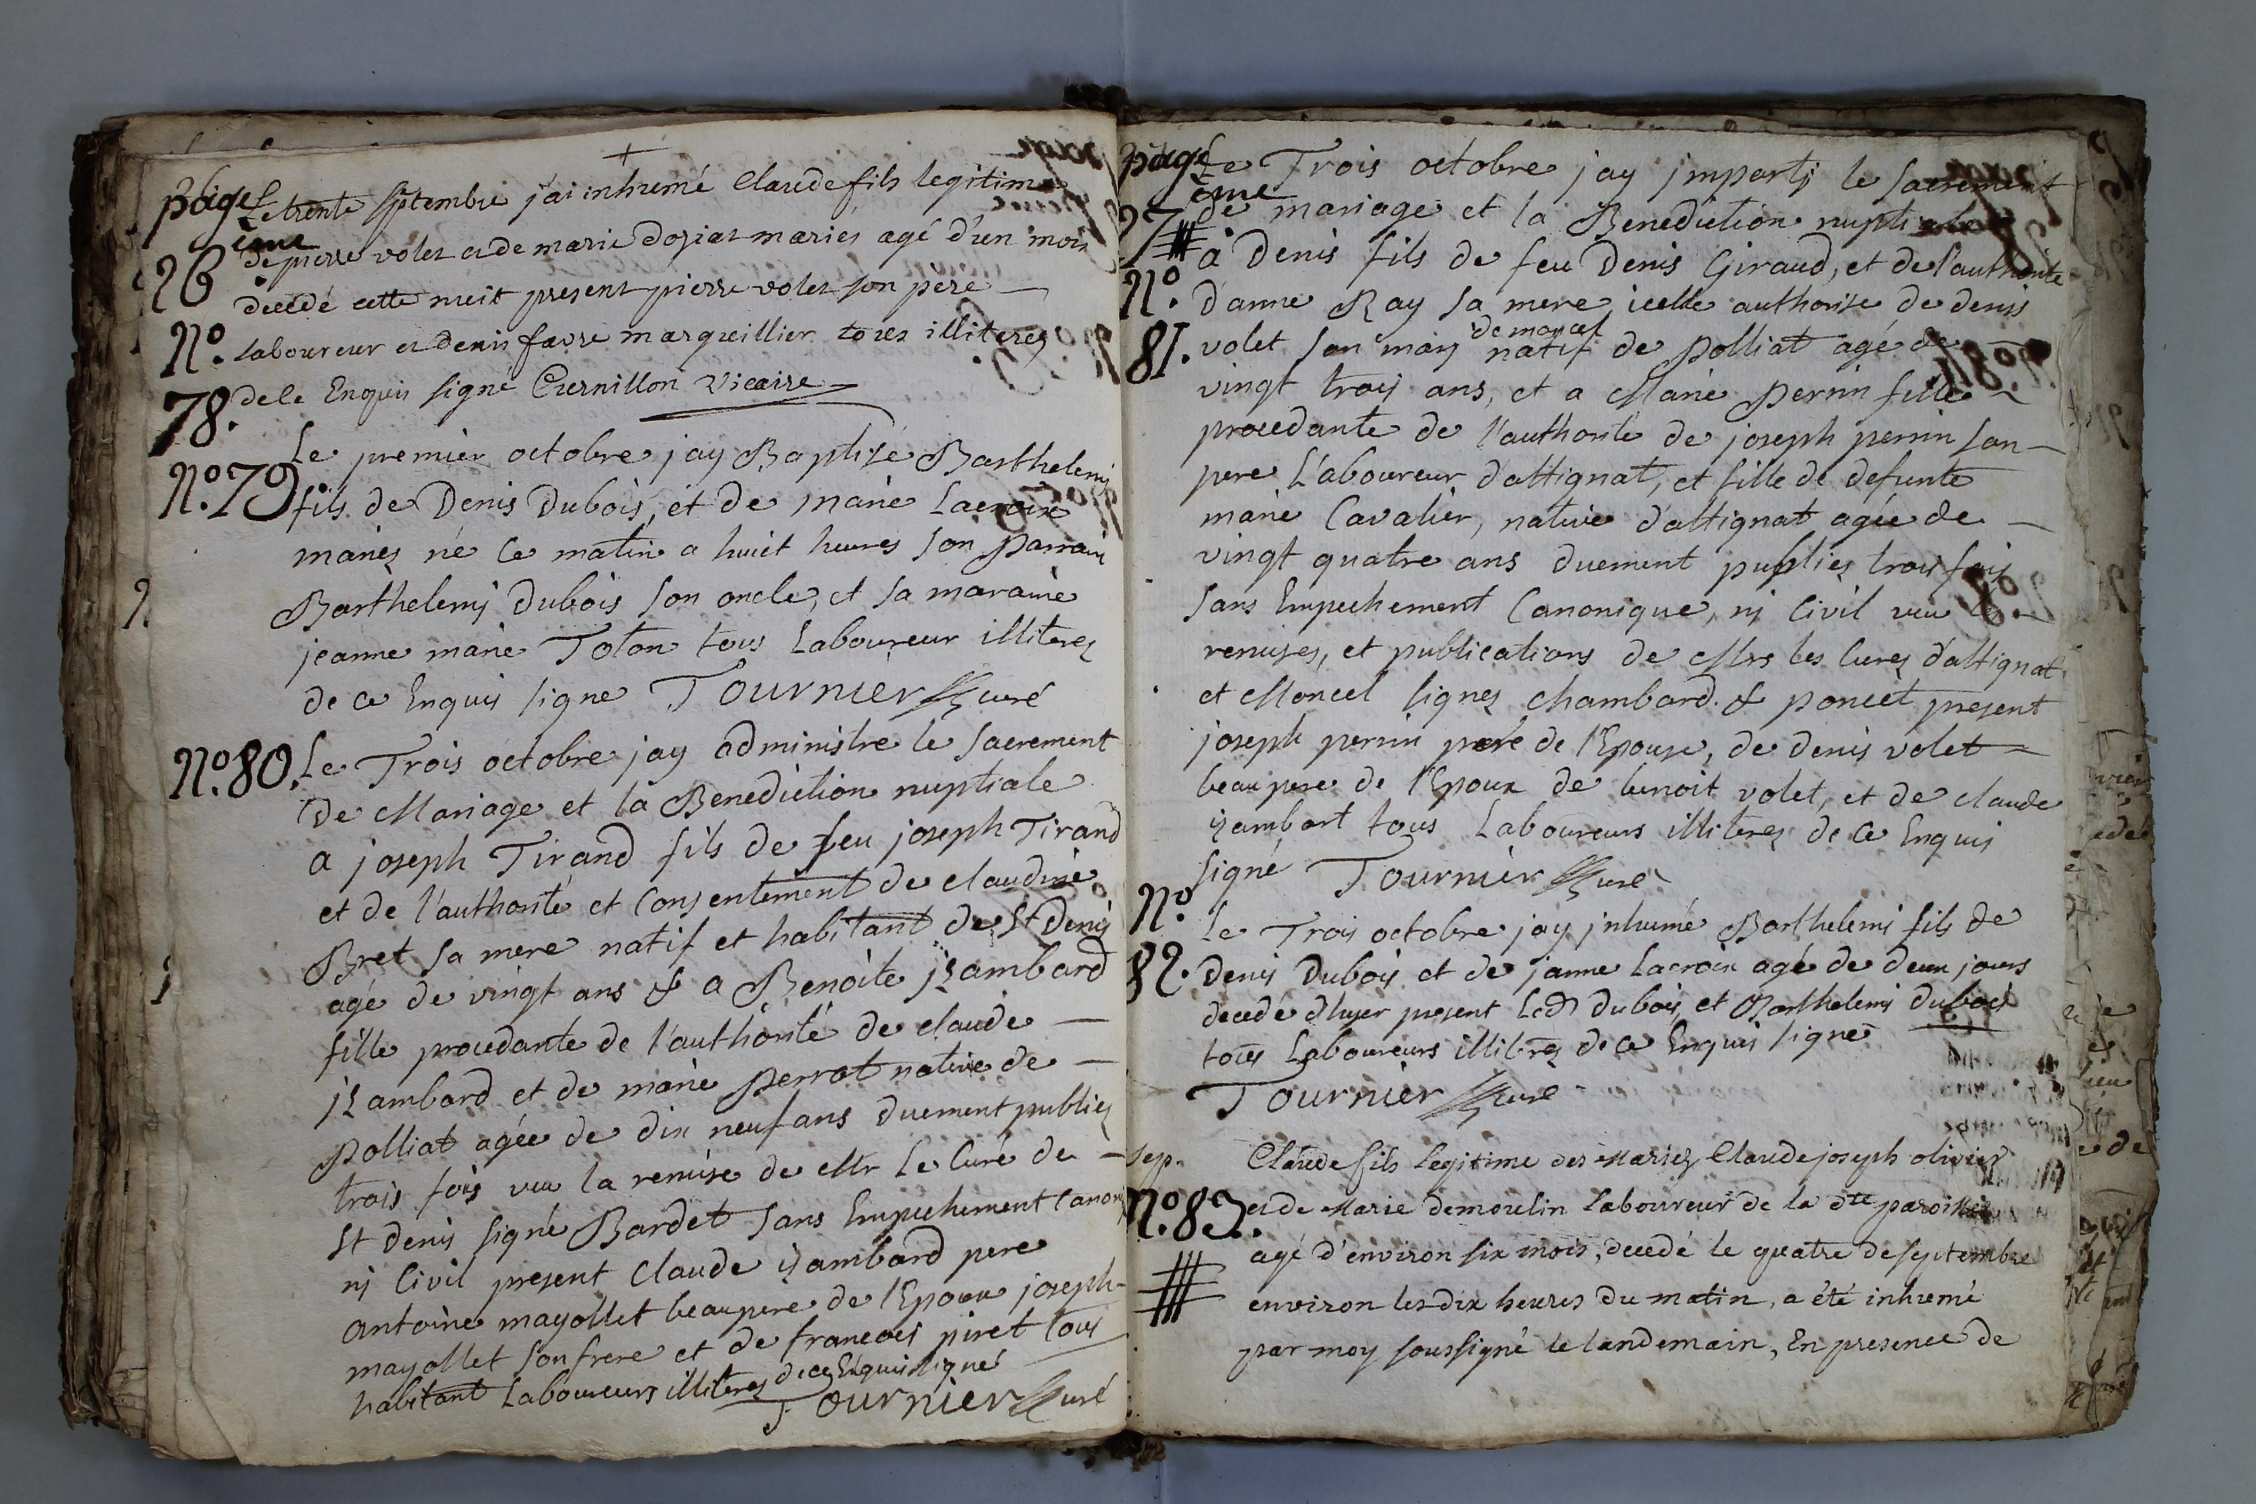 page
26
ème
Le trente septembre j'ai inhumé Claude fils legitime
de pierre volet et de marie dogiat mariés agé d'un mois
decedé cette nuit present pierre volet son père
N°. laboureur et denis favre marguillier tous illiterez
78. de le Enquis signé Cursnillon vicaire
N° 79 Le premier octobre jay Baptisé Barthelemj
fils de Denis Dubois, et de marie Lacroix
mariés né ce matin a huit heures son Parrain
Barthelemj Dubois son oncle, et sa maraine
jeanne marie Tolon tous Laboureur illiterez
de ce Enquis signe Tournier curé
N° 80. Le Trois octobre jay administre le sacrement
de Mariage et la Benediction nuptiale
a joseph Tirand fils de feu joseph Tirand
et de l'authorité et consentement de claudine
Bret sa mere natif et habitant de St Denis
agé de vingt ans & a Benoite jzambard
fille procedante de l'authorité de claude
jzambard et de marie perrat native de
Polliat agée de dix neuf ans duement publiez
trois fois veu la remise de Mr Le Curé de
St denis signé Bardet sans Empechement canon
nj Civil present Claude izambard pere
Antoine mayollet beaupere de l'Epoux joseph
mayollet son frere et de francois piret tous
habitant Laboureurs illiterez de ce Enquis signé
Tournier curé
page
27
ème
N°
81.
Le Trois octobre jay jmpartj le sacrement
de mariage et la Benediction nuptiale
a Denis fils de feu Denis Giraud, et de l'authorité
d'anne Ray sa mere icelle authorise de denis
de moncel
volet son mary natif de Polliat agé de
vingt trois ans, et a Marie Perrin fille
procedante de l'authorité de joseph perrin son
pere L'aboureur d'attignat, et fille de defunte
marie Cavalier, native d'attignat agée de
vingt quatre ans duement publiez trois fois
sans Empechement Canonique, nj Civil veu les
remises, et publications de Mrs les Curez d'attignat
et Moncel signez chambard. & poncet present
joseph perrin pere de l'Epouse, de denis volet
beaupere de l'Epoux de benoit volet, et de claude
izambart tous Laboureurs illiterez de ce Enquis
signé Tournier curé
N°
82.
Le Trois octobre jay jnhumé Barthelemi fils de
Denis Dubois et de janne Lacroix agé de deux jours
decedé d'hyer present Led Dubois et Barthelemi dubois
tous Laboureurs illiterez de ce Enquis signé
Tournier curé
sep. Claude fils legitime des Mariez Claude joseph olivier
N° 83. et de Marie demoulin laboureur de la dte paroisse
agé d'environ six mois, decedé le quatre de septembre
environ les dix heures du matin, a été inhumé
par moy soussigné le landemain, En presence de